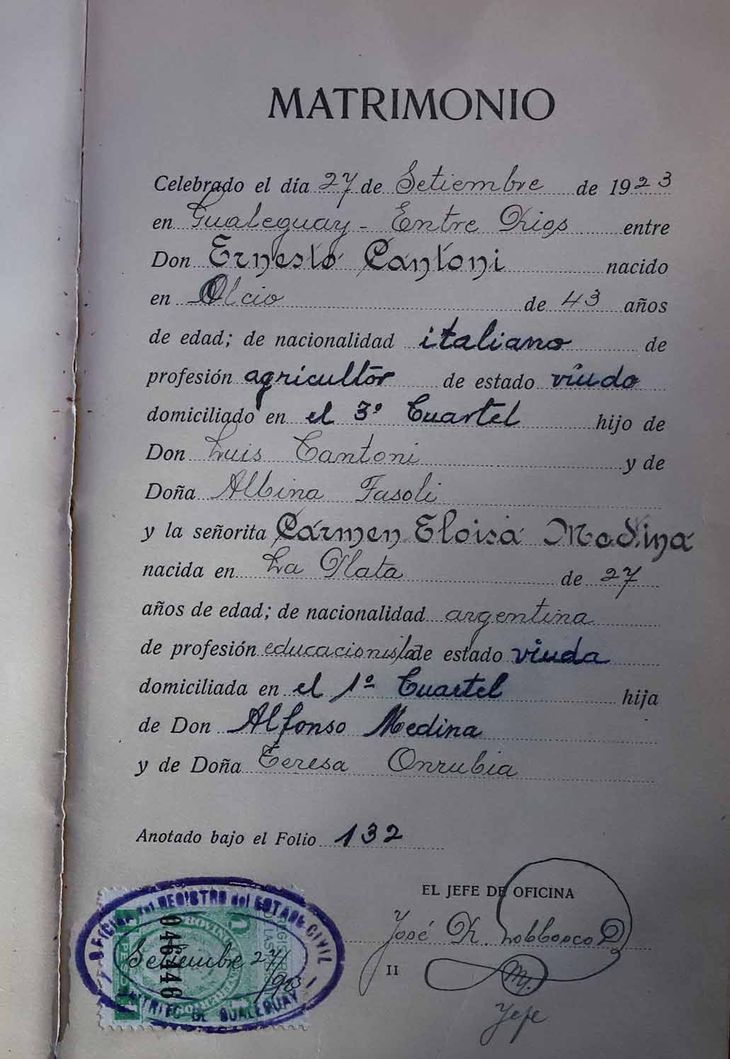 MATRIMONIO
Celebrado el día 27 de Setiembre de 1923
en Gualeguay - Entre Rios entre
Don Ernesto Cantoni nacido
en Olcio de 43 años
de edad; de nacionalidad italiano de
profesión agricultor de estado viudo
domiciliado en el 3º Cuartel hijo de
Don Luis Cantoni y de
Doña Albina Fasoli
y la señorita Carmen Eloisa Medina
nacida en La Plata de 27
años de edad; de nacionalidad argentina
de profesión educacionista de estado viuda
domiciliada en el 1º Cuartel hija
de Don Alfonso Medina
y de Doña Teresa Onrubia
Anotado bajo el Folio 132
EL JEFE DE OFICINA
José
Jefe
OFICINA del REGISTRO del ESTADO CIVIL
046446
Setiembre 27/923
DISTRITO DE GUALEGUAY